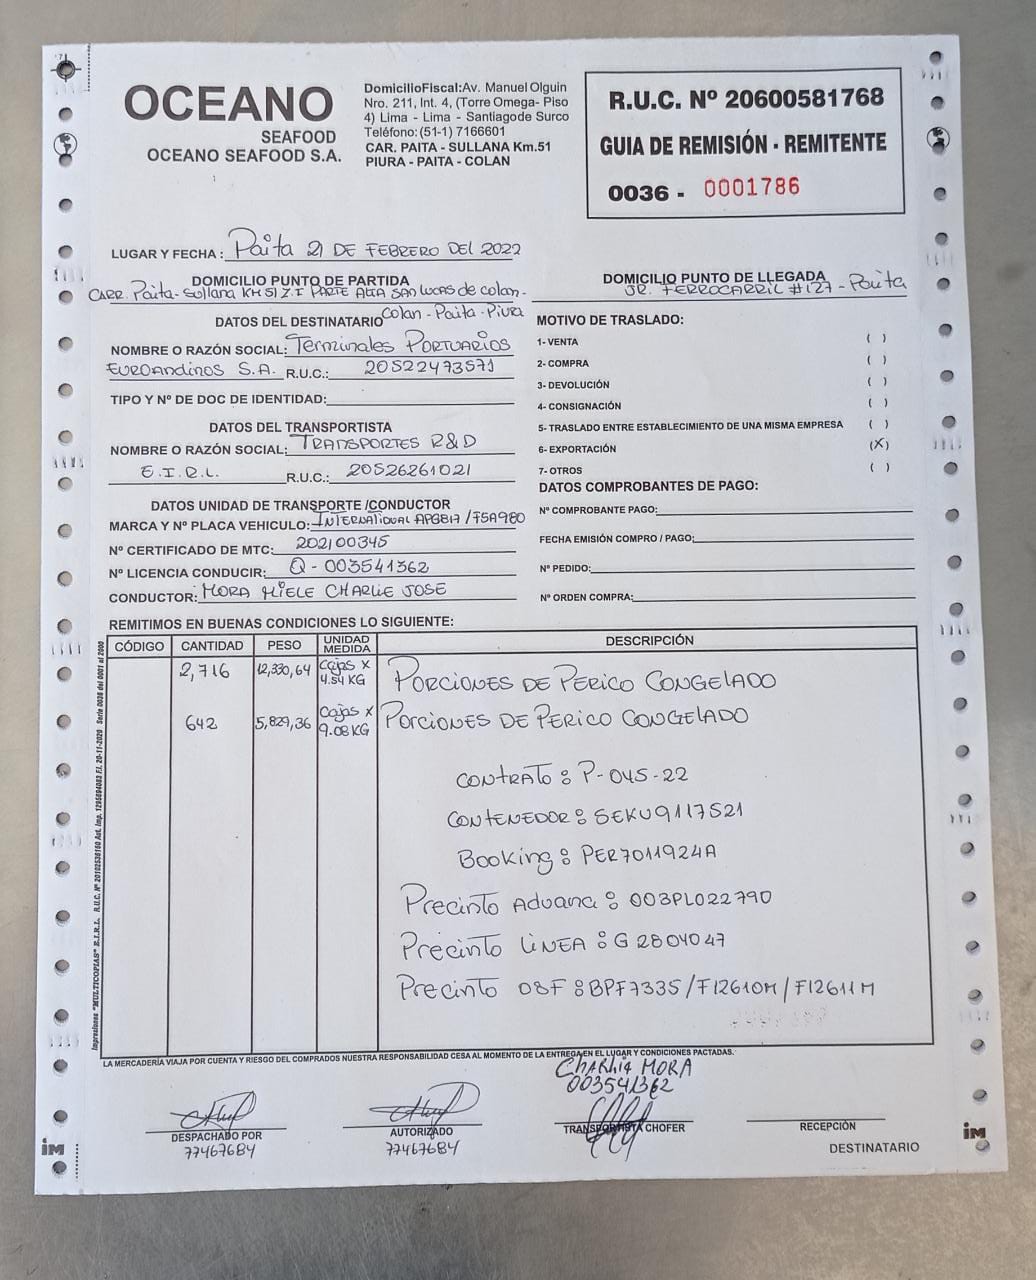 OCEANO
SEAFOOD
OCEANO SEAFOOD S.A.
DomicilioFiscal:Av. Manuel Olguin
Nro. 211, Int. 4, (Torre Omega- Piso
4) Lima - Lima - Santiagode Surco
Teléfono:(51-1) 7166601
CAR. PAITA - SULLANA Km.51
PIURA - PAITA - COLAN
R.U.C. Nº 20600581768
GUIA DE REMISIÓN - REMITENTE
0036 - 0001786
LUGAR Y FECHA : Paita 21 DE FEBRERO DEL 2022
DOMICILIO PUNTO DE PARTIDA
CARR. Paita-Sullana KM 51 Z.I PARTE ALTA SAN LUCAS de colan-
Colan-Paita-Piura
DOMICILIO PUNTO DE LLEGADA
JR. FERROCARRIL #127 - Paita
DATOS DEL DESTINATARIO
NOMBRE O RAZÓN SOCIAL: Terminales PORTUARIOS
EUROAndinos S.A. R.U.C.: 20522473571
TIPO Y Nº DE DOC DE IDENTIDAD:
DATOS DEL TRANSPORTISTA
NOMBRE O RAZÓN SOCIAL: TRANSPORTES R&D
E.I.R.L. R.U.C.: 20526261021
DATOS UNIDAD DE TRANSPORTE /CONDUCTOR
MARCA Y Nº PLACA VEHICULO: INTERNATIONAL APG817/F5A980
Nº CERTIFICADO DE MTC: 202100345
Nº LICENCIA CONDUCIR: Q-003541362
CONDUCTOR: MORA MIELE CHARLIE JOSE
MOTIVO DE TRASLADO:
1- VENTA ( )
2- COMPRA ( )
3- DEVOLUCIÓN ( )
4- CONSIGNACIÓN ( )
5- TRASLADO ENTRE ESTABLECIMIENTO DE UNA MISMA EMPRESA ( )
6- EXPORTACIÓN (X)
7- OTROS ( )
DATOS COMPROBANTES DE PAGO:
Nº COMPROBANTE PAGO:
FECHA EMISIÓN COMPRO / PAGO:
Nº PEDIDO:
Nº ORDEN COMPRA:
REMITIMOS EN BUENAS CONDICIONES LO SIGUIENTE:
CÓDIGO CANTIDAD PESO UNIDAD MEDIDA DESCRIPCIÓN
2,716 12,330,64 Cajas x 4.54 KG PORCIONES DE PERICO CONGELADO
642 5,829,36 Cajas x 9.08 KG PORCIONES DE PERICO CONGELADO
CONTRATO : P-045-22
CONTENEDOR : SEKU9117521
Booking : PER7011924A
Precinto Aduana : 003PL022790
Precinto LINEA : G2804047
Precinto OSF : BPF7335/F12610M/F12611M
Impresiones "MULTICOPIAS" E.I.R.L. R.U.C. Nº 20102536160 Aut. Imp. 1295894083 F.I. 20-11-2020 Serie 0036 del 0001 al 2000
LA MERCADERÍA VIAJA POR CUENTA Y RIESGO DEL COMPRADOS NUESTRA RESPONSABILIDAD CESA AL MOMENTO DE LA ENTREGA EN EL LUGAR Y CONDICIONES PACTADAS.
CHARLIE MORA
003541362
DESPACHADO POR
77467684
AUTORIZADO
77467684
TRANSPORTISTA CHOFER
RECEPCIÓN
DESTINATARIO
iM
iM